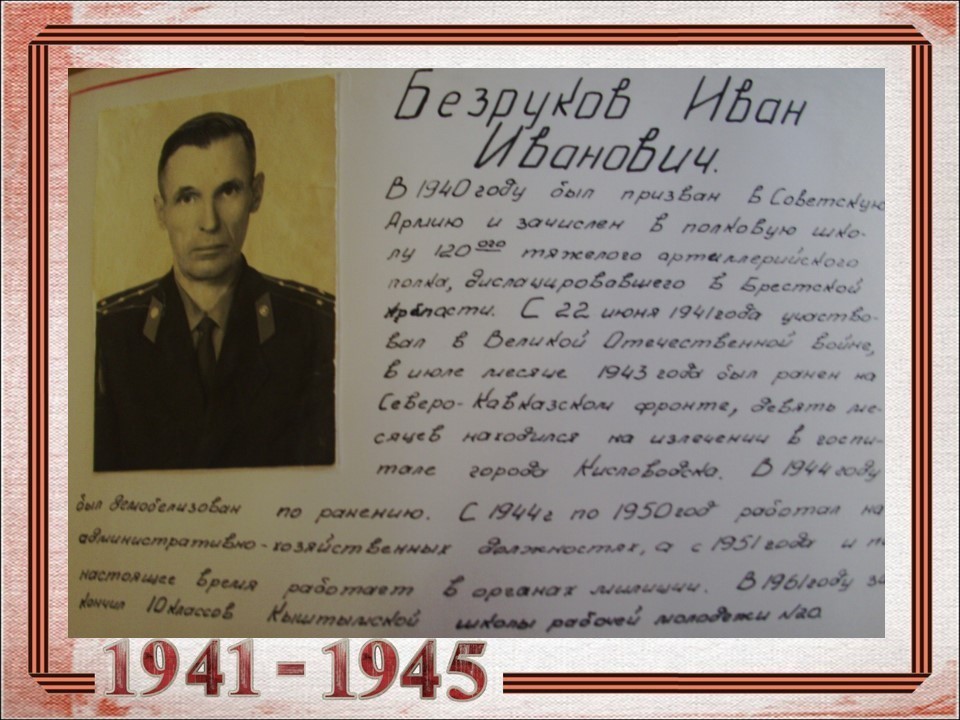 Безруков Иван
Иванович.
В 1940 году был призван в Советскую
Армию и зачислен в полковую шко-
лу 120ого тяжелого артиллерийского
полка, дислацировавшего в Брестской
крепасти. С 22 июня 1941 года участво-
вал в Великой Отечественной войне,
в июле месяце 1943 года был ранен на
Северо-Кавказском фронте, девять ме-
сяцев находился на излечении в госпи-
тале города Кисловодска. В 1944 году
был демобелизован по ранению. С 1944 г по 1950 год работал на
административно-хозяйственных должностях, а с 1951 года и п
настоящее время работает в органах милиции. В 1961 году за
кончил 10 классов Кыштымской школы рабочей молодежи
1941-1945